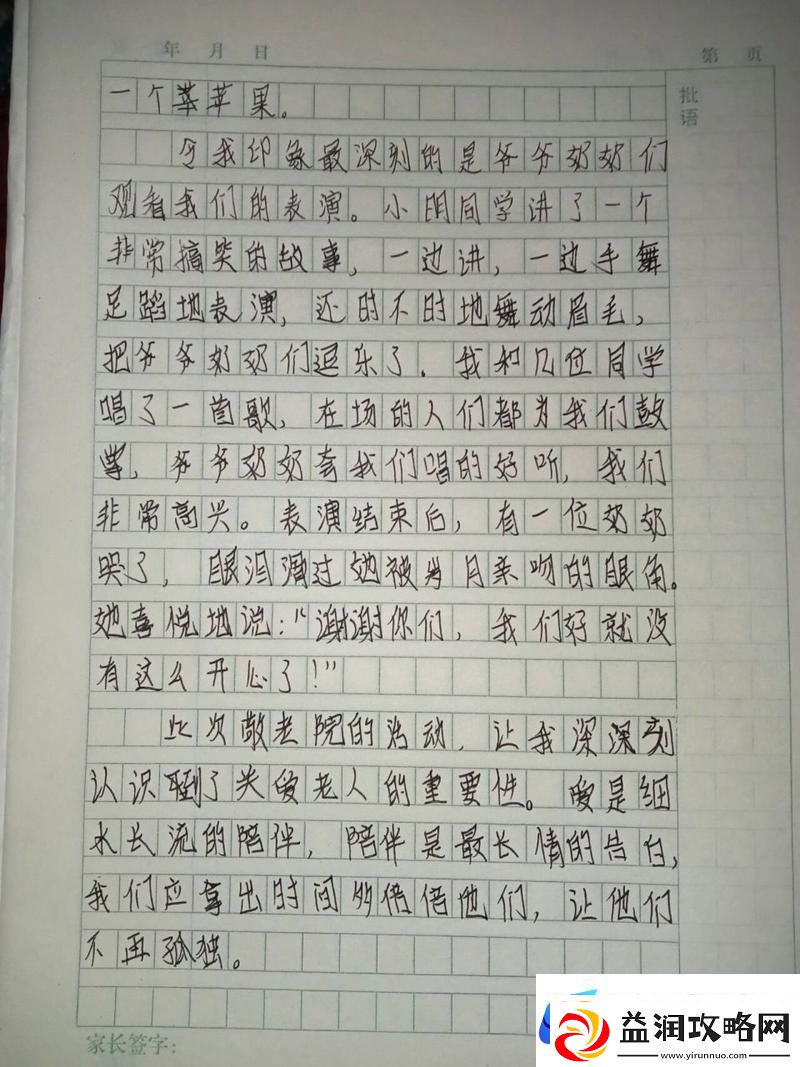 年 月 日
第 页
批语
一个苹苹果。
令我印象最深刻的是爷爷奶奶们
观看我们的表演。小明同学讲了一个
非常搞笑的故事，一边讲，一边手舞
足蹈地表演，还时不时地舞动眉毛，
把爷爷奶奶们逗乐了。我和几位同学
唱了一首歌，在场的人们都为我们鼓
掌，爷爷奶奶夸我们唱的好听，我们
非常高兴。表演结束后，有一位奶奶
哭了，眼泪滑过她被岁月亲吻的眼角。
她喜悦地说：“谢谢你们，我们好就没
有这么开心了！”
此次敬老院的活动，让我深深刻
认识到了关爱老人的重要性。爱是细
水长流的陪伴，陪伴是最长情的告白，
我们应拿出时间多陪陪他们，让他们
不再孤独。
家长签字：
益润攻略网
www.yirunnuo.com